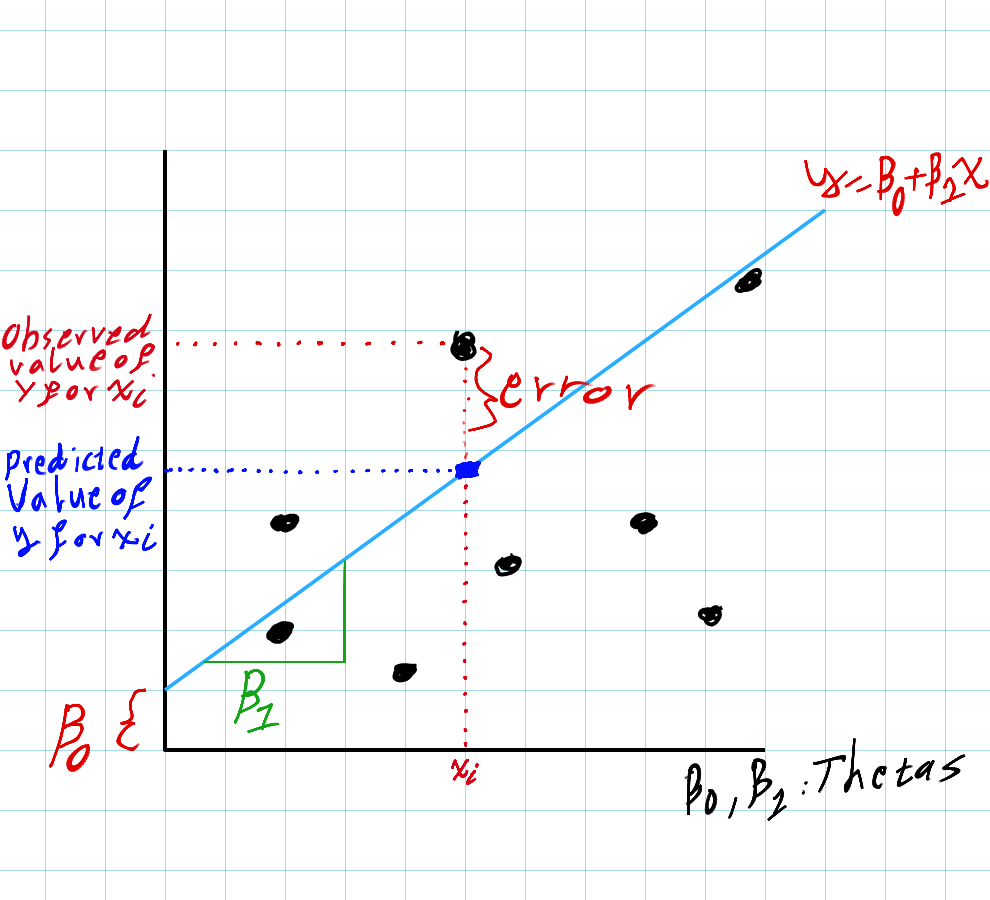 y=β₀+β₁x
Observed
value of
Y for xᵢ
error
Predicted
Value of
y for xᵢ
β₁
β₀ {
xᵢ
β₀, β₁ : Thetas